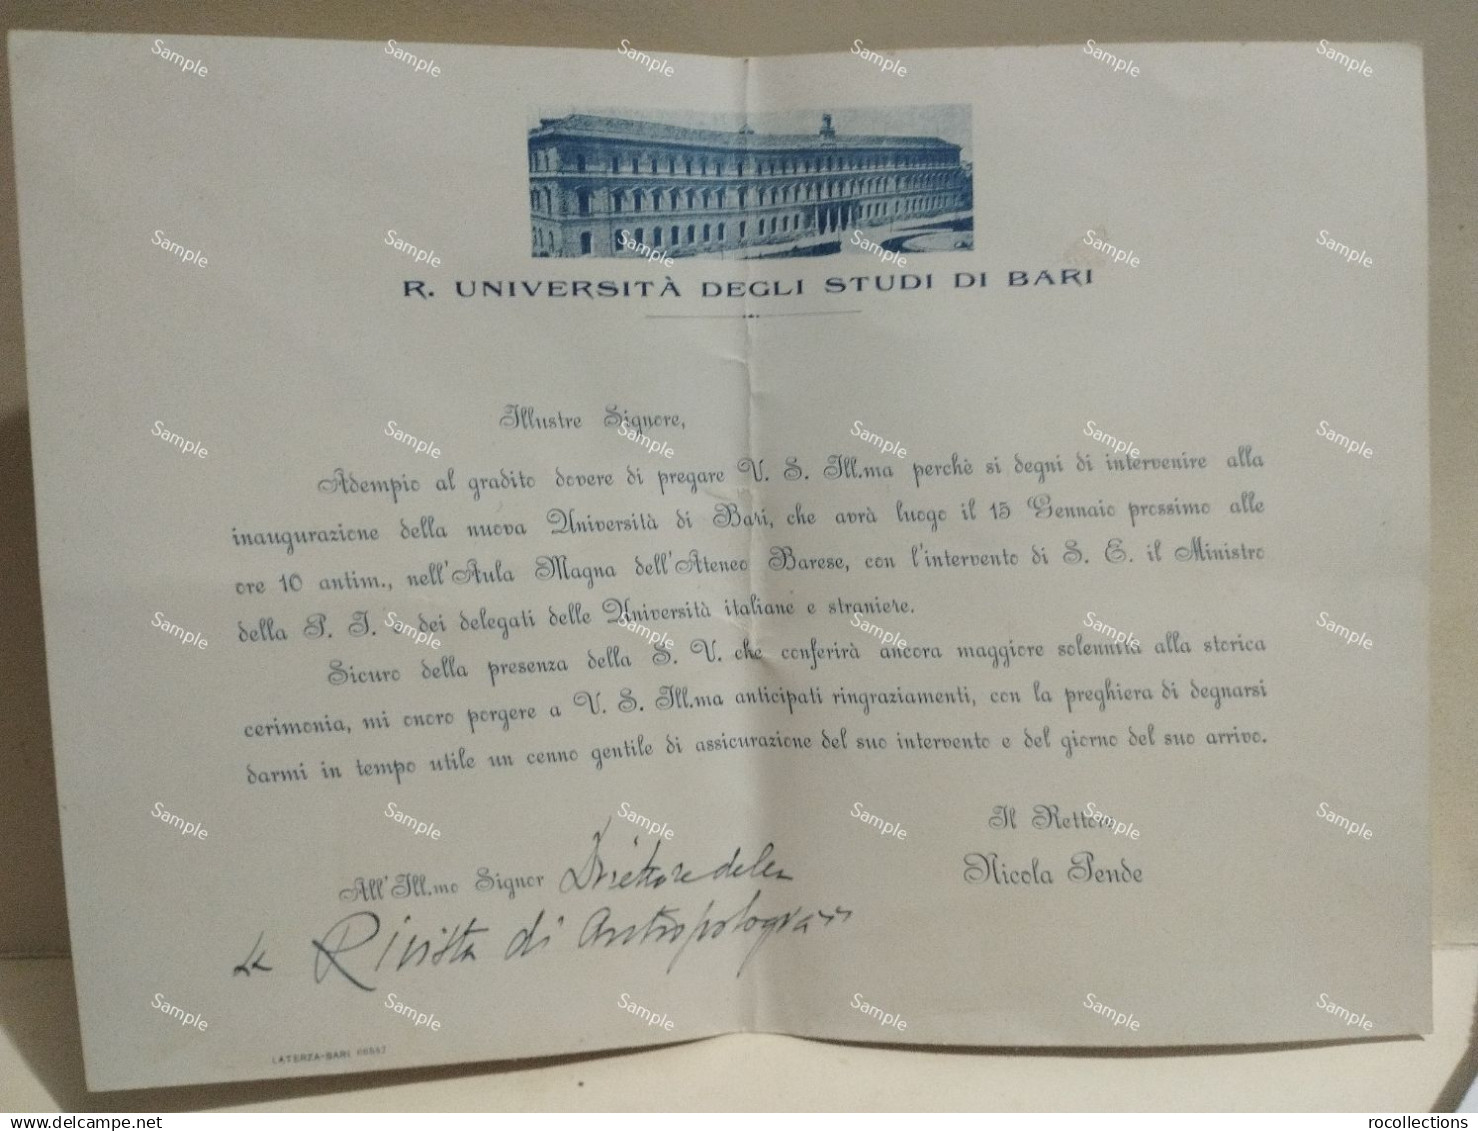 R. UNIVERSITÀ DEGLI STUDI DI BARI
Illustre Signore,
Adempio al gradito dovere di pregare V. S. Ill.ma perchè si degni di intervenire alla
inaugurazione della nuova Università di Bari, che avrà luogo il 15 Gennaio prossimo alle
ore 10 antim., nell'Aula Magna dell'Ateneo Barese, con l'intervento di S. E. il Ministro
della P. I. e dei delegati delle Università italiane e straniere.
Sicuro della presenza della S. V. che conferirà ancora maggiore solennità alla storica
cerimonia, mi onoro porgere a V. S. Ill.ma anticipati ringraziamenti, con la preghiera di degnarsi
darmi in tempo utile un cenno gentile di assicurazione del suo intervento e del giorno del suo arrivo.
Il Rettore
Nicola Pende
All'Ill.mo Signor Direttore della
Rivista di Antropologia
LATERZA-BARI
rocollections